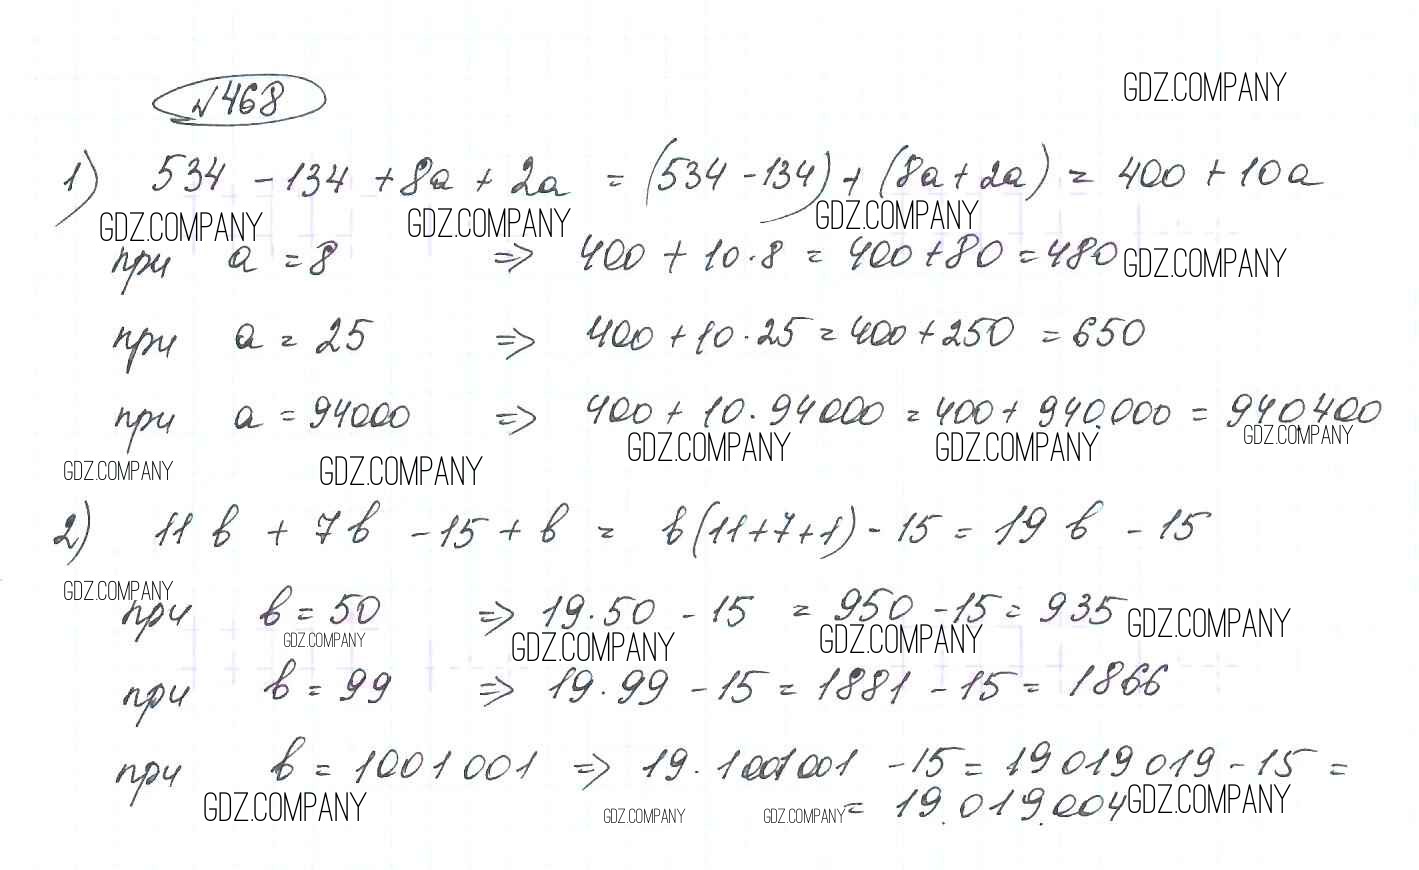 №468
GDZ.COMPANY
1) 534 - 134 + 8a + 2a = (534 - 134) + (8a + 2a) = 400 + 10a
GDZ.COMPANY GDZ.COMPANY GDZ.COMPANY
при a = 8 => 400 + 10·8 = 400 + 80 = 480 GDZ.COMPANY
при a = 25 => 400 + 10·25 = 400 + 250 = 650
при a = 94000 => 400 + 10·94000 = 400 + 940.000 = 940.400
GDZ.COMPANY GDZ.COMPANY GDZ.COMPANY GDZ.COMPANY GDZ.COMPANY
2) 11b + 7b - 15 + b = b(11+7+1) - 15 = 19b - 15
GDZ.COMPANY
при b = 50 => 19·50 - 15 = 950 - 15 = 935 GDZ.COMPANY
GDZ.COMPANY GDZ.COMPANY GDZ.COMPANY
при b = 99 => 19·99 - 15 = 1881 - 15 = 1866
при b = 1001001 => 19·1001001 - 15 = 19019019 - 15 =
GDZ.COMPANY GDZ.COMPANY GDZ.COMPANY = 19.019.004 GDZ.COMPANY